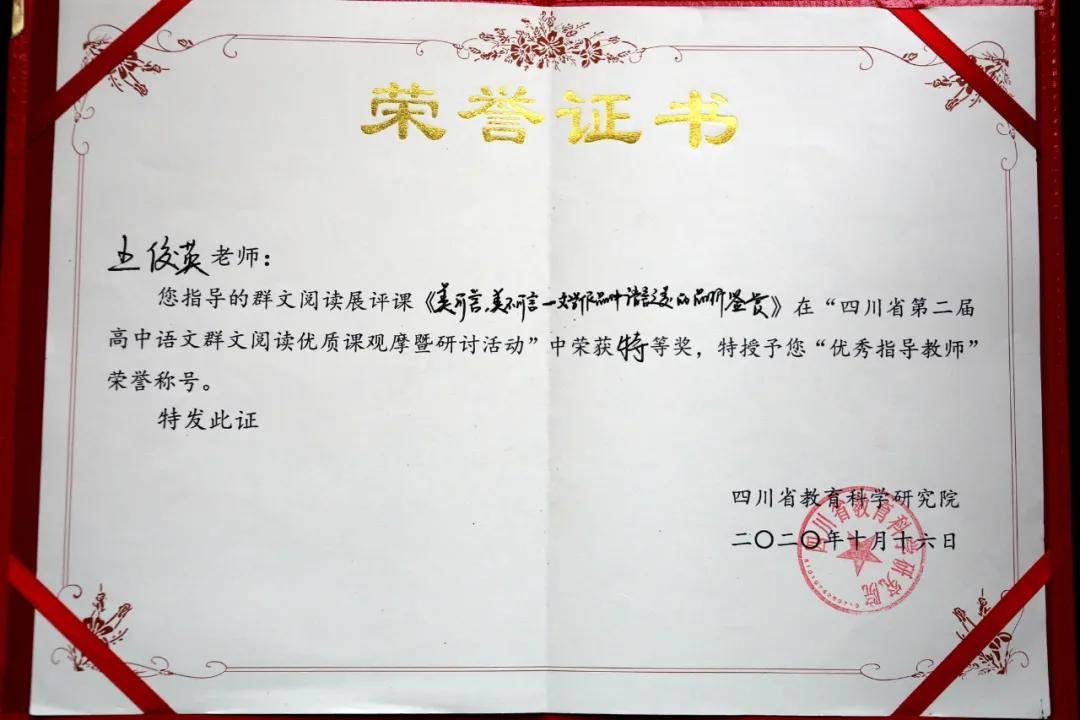 荣誉证书
王俊英老师：
您指导的群文阅读展评课《美可言，美不可言—文学作品中语言之美的品析鉴赏》在“四川省第二届
高中语文群文阅读优质课观摩暨研讨活动”中荣获特等奖，特授予您“优秀指导教师”
荣誉称号。
特发此证
四川省教育科学研究院
二〇二〇年十月十六日
四川省教育科学研究院